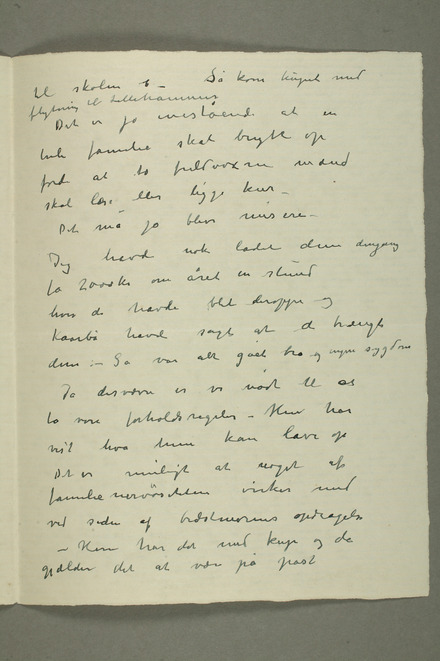 til skolen o – Så kom krigen med
flytning til Lillehammer
Det er jo oprivende at en
hele familie skal brytes op
fordi at to fuldvoxne mænd
skal læse eller ligge kur –
Det må jo blive misere –
Jeg havde nok ladet dem dengang
få 200 om året en stund
hvis de havde blit deroppe – og
Kaarbø havde sagt at de trængte
dem – Så var alt gået bra og ingen sygdom
Ja desværre er vi nødt til at
ta vore forholdsregler – Hun har
vist hva hun kan lave op
Det er muligt at noget af
familienervøsiteten virker med
ved siden af bedstmorens opdragelse
– Hun har det med knep og da
gjælder det at være på post